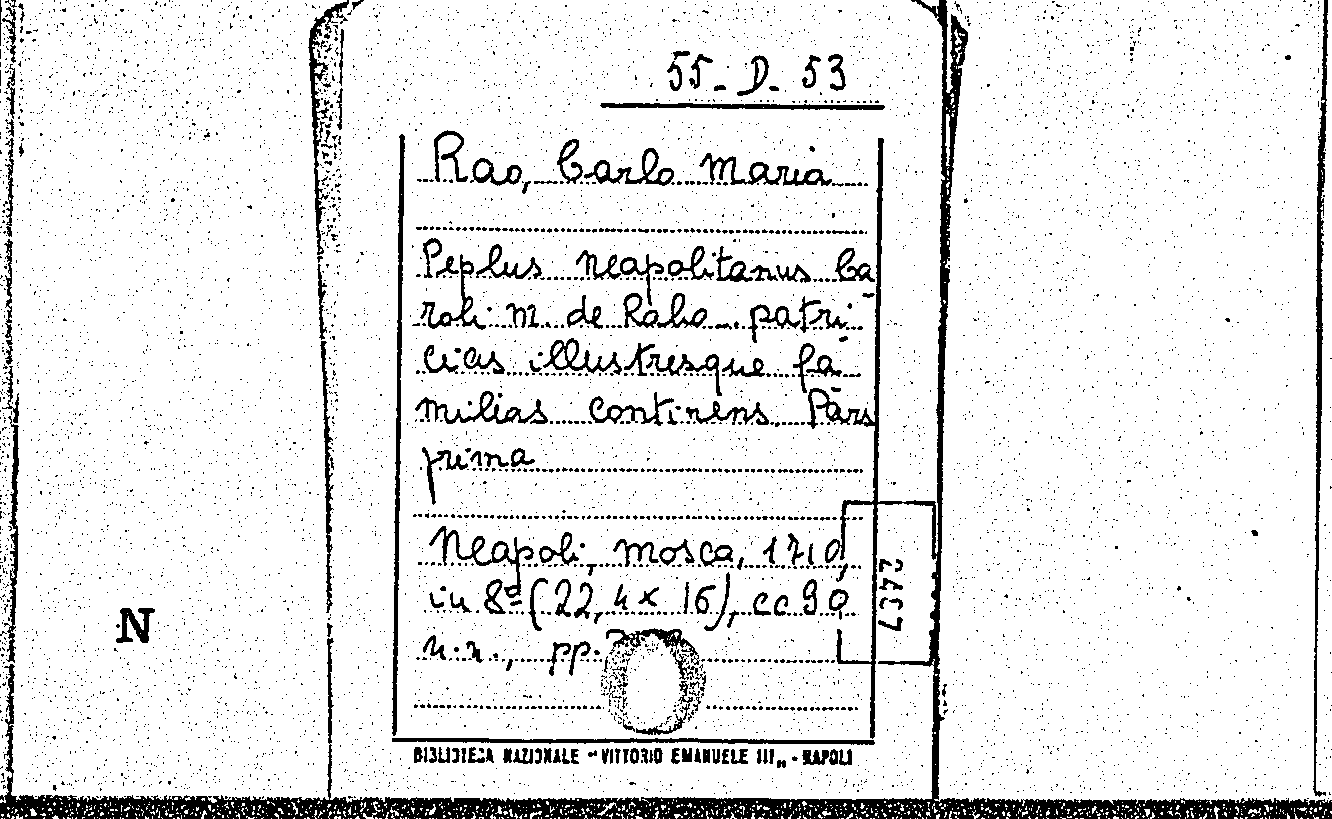 55-D-53
Rao, Carlo Maria
Peplus neapolitanus Ca
roli M. de Raho patri-
cias illustresque fa-
milias continens. Pars
prima
Neapoli, Mosca, 1710,
in 8º (22,4 x 16), cc 90
n.n., pp.
2437
N
BIBLIOTECA NAZIONALE "VITTORIO EMANUELE III„ - NAPOLI